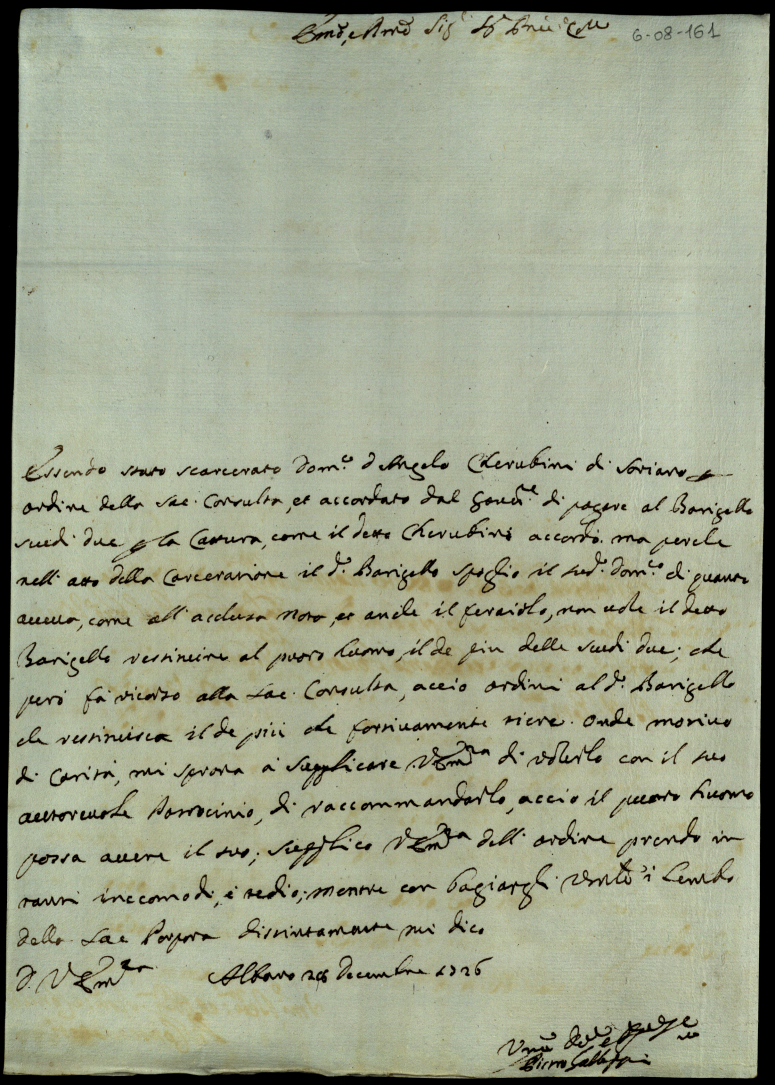 Em̃o, e Rm̃o Sig.r Sig.r Pnẽ Col.mo
6-08-161
Essendo stato scarcerato Dom.co d'Angelo Cherubini di Soriano p
ordine della Sac. Consulta, et accordato dal Gover.re di pagare al Barigello
scudi due p la Cattura, come il detto Cherubini accordò. ma perche
nell'atto della Carceratione il d.o Barigello spogliò il sud.o Dom.co di quanto
aveva, come all'acclusa Nota, et anche il feraiolo, non vole il detto
Barigello restituire al povro huomo, il de piu delle scudi due; che
però fà ricorso alla Sac. Consulta, acciò ordini al d.o Barigello
che restituisca il de più che furtivamente tiene. Onde motivo
di Carità, mi sprona à supplicare V Em̃za di volerlo con il suo
autorevole Patrocinio, di raccommandarlo, acciò il povro huomo
possa avere il suo; supplico V Em̃za dell'ordine prendo in
tanti incomodi, e tedio; mentre con bagiargli Umilte i Lembo
della Sac Porpora distintamente mi dico
D. V Em̃za Albano 28 Decembre 1726
Um̃o Dev.o e
Pietro